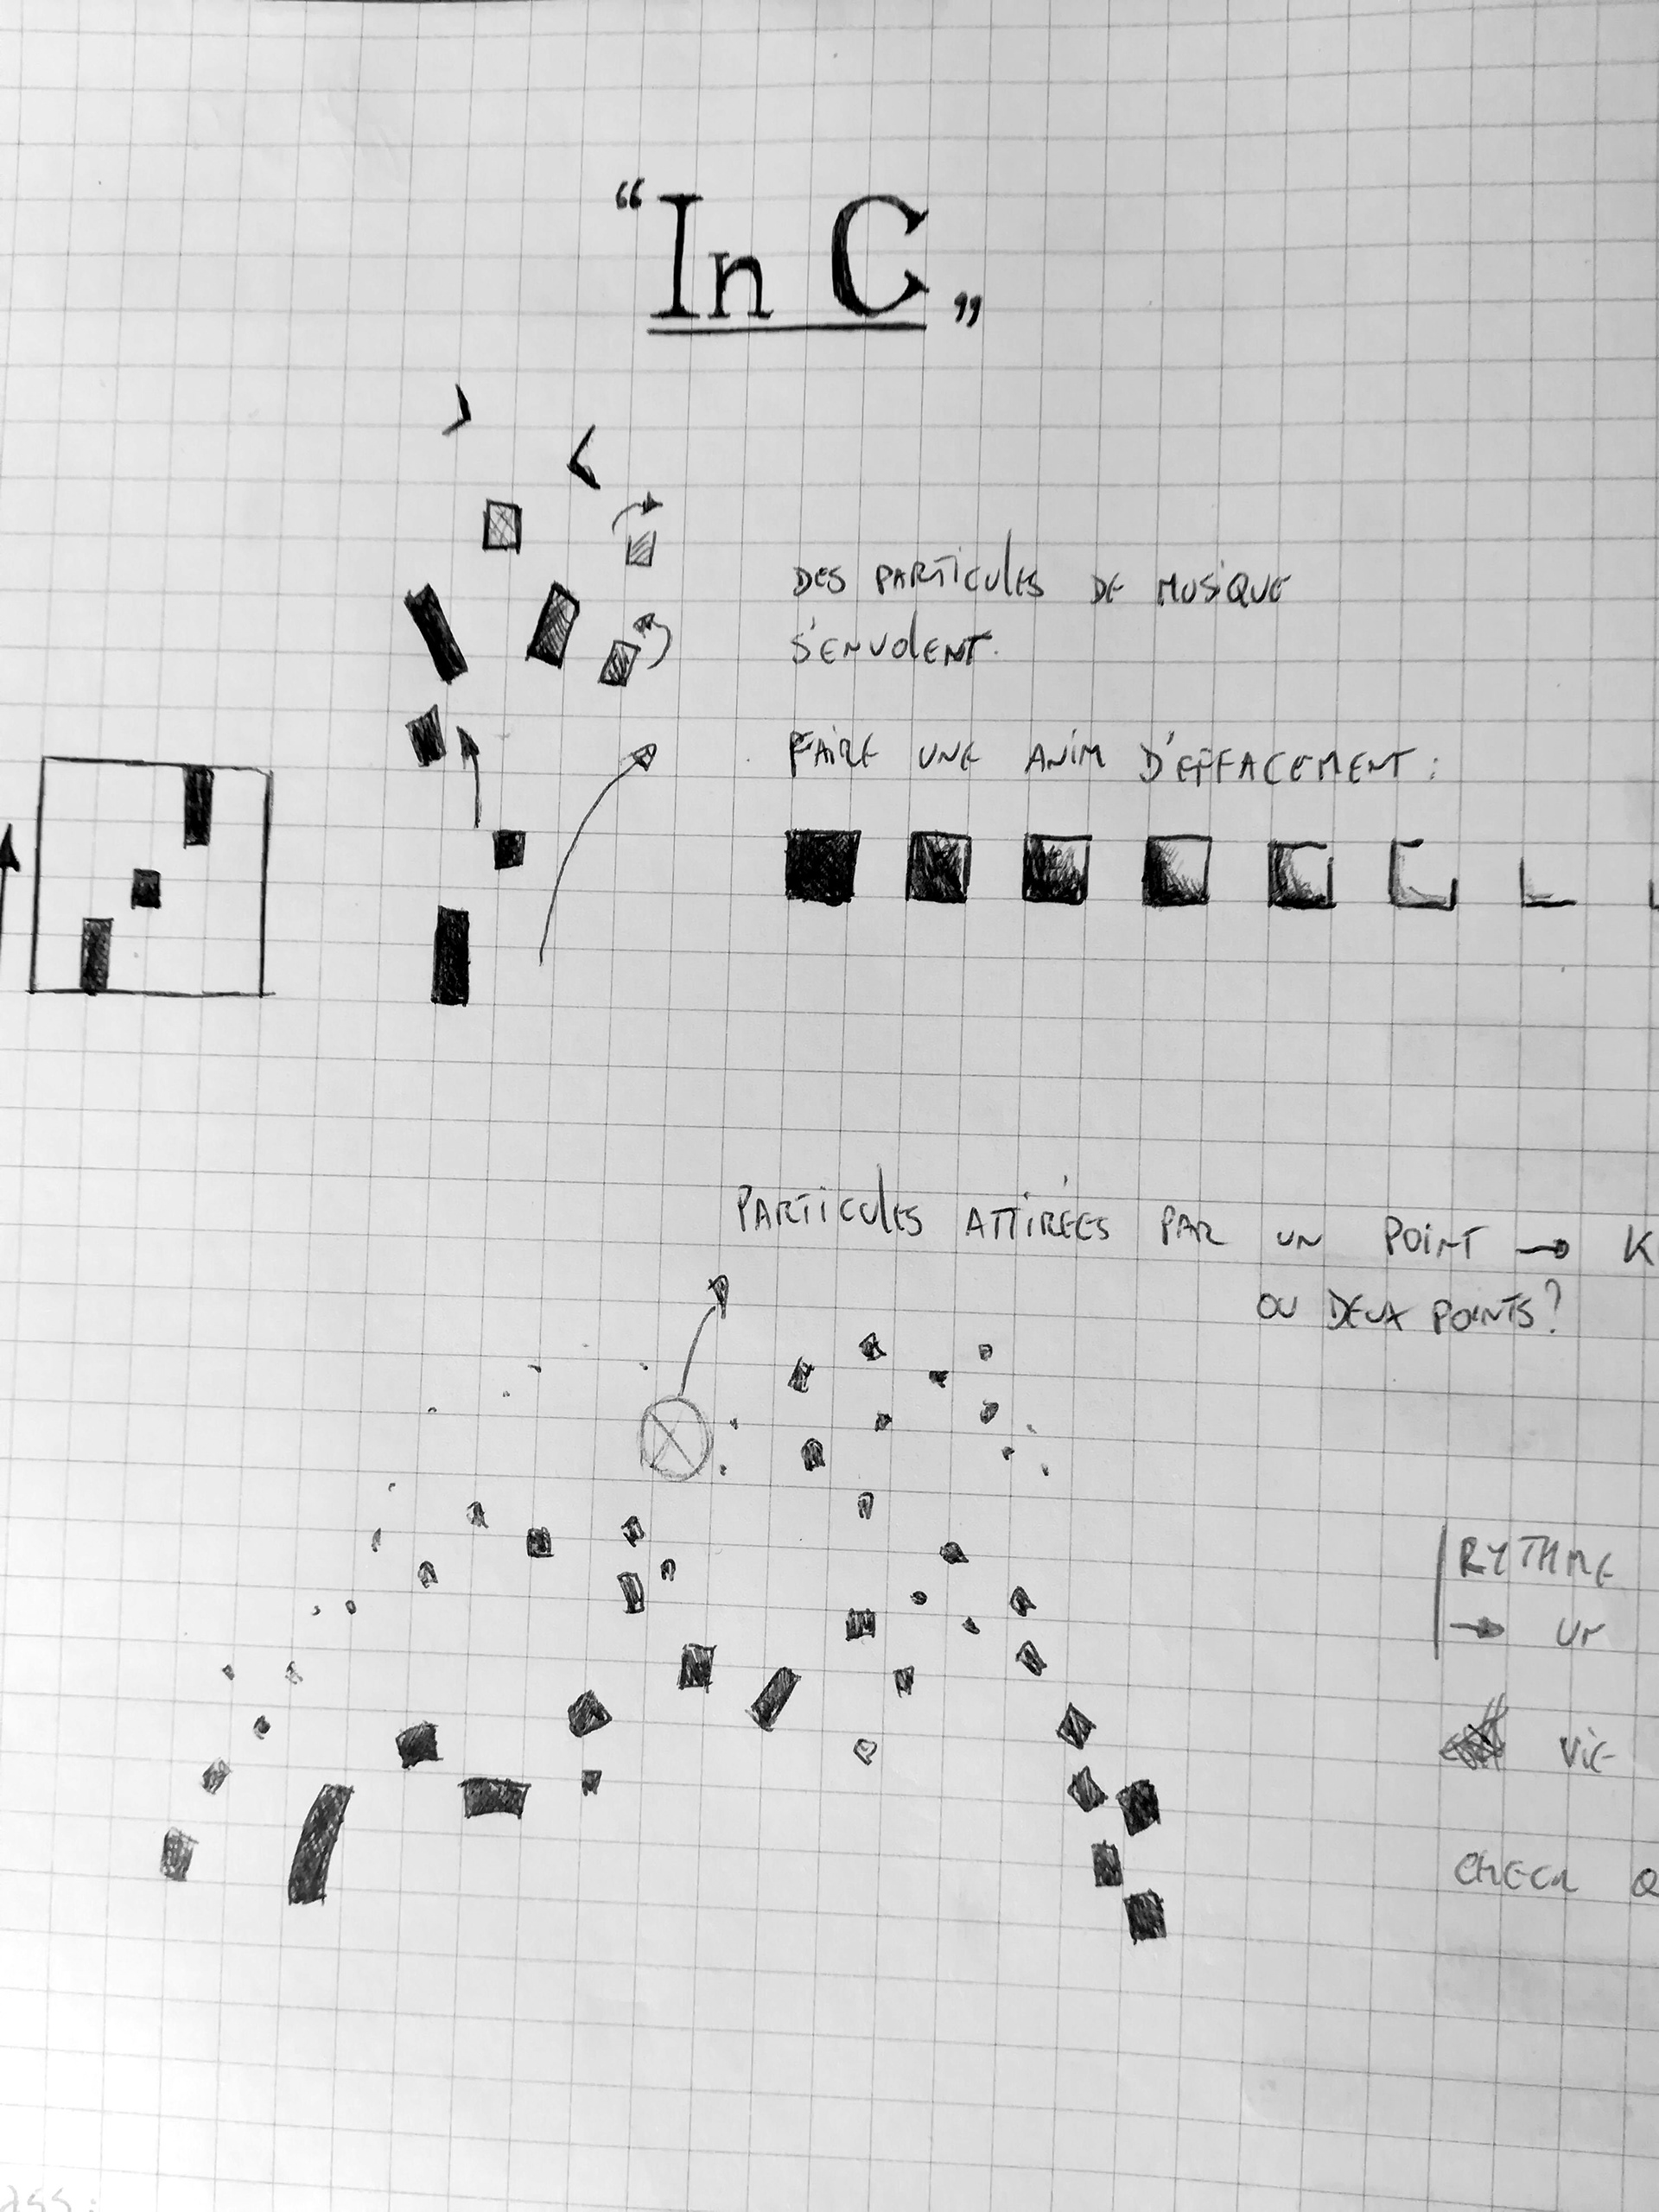 “In C„
DES PARTICULES DE MUSIQUE
S'ENVOLENT.
FAIRE UNE ANIM D'EFFACEMENT :
PARTICULES ATTIRÉES PAR UN POINT → K
OU DEUX POINTS ?
RYTHME
→ UN
VIE
CHECK Q